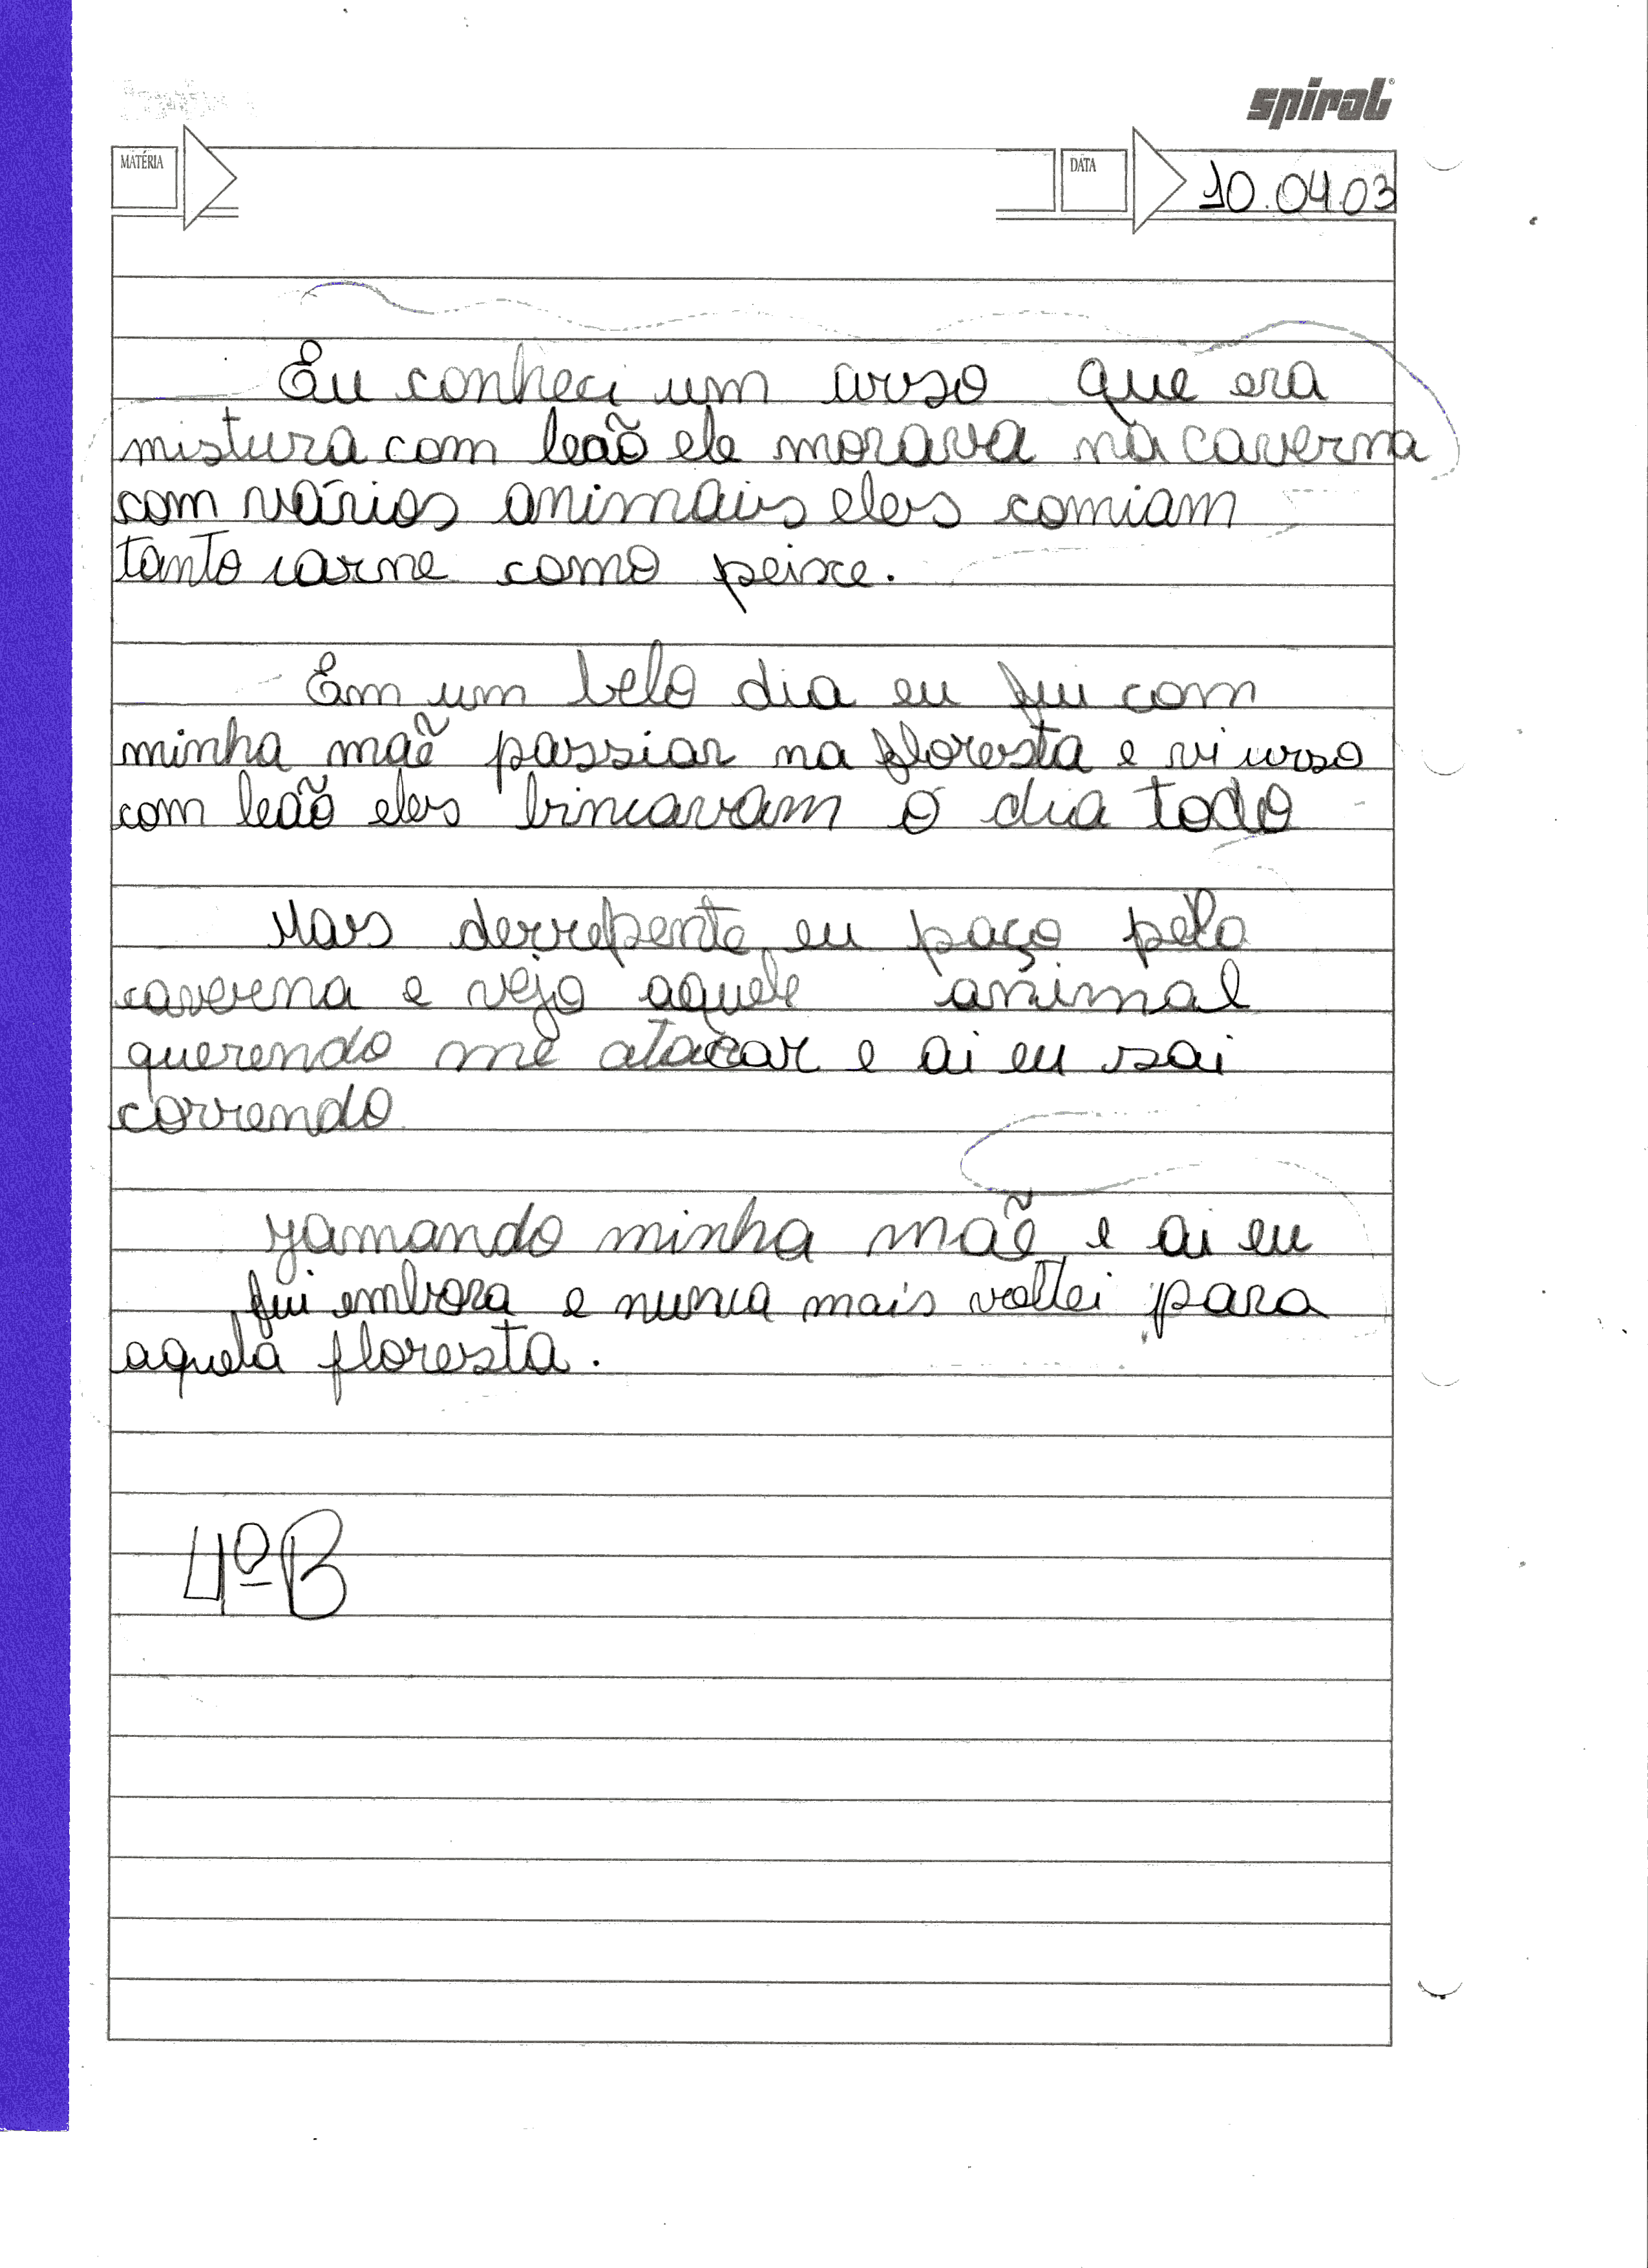 spiral
MATÉRIA
DATA
10.04.03
Eu conheci um urso que era
mistura com leaõ ele morava na caverna
com vários animais eles comiam
tanto carne como peixe.
Em um belo dia eu fui com
minha maẽ passiar na floresta e vi urso
com leaõ eles brincavam o dia todo
Mais derrepente eu paço pela
caverna e vejo aquele animal
querendo me atacar e ai eu sai
correndo
yamando minha maẽ e ai eu
fui embora e nunca mais voltei para
aquela floresta.
4ºB